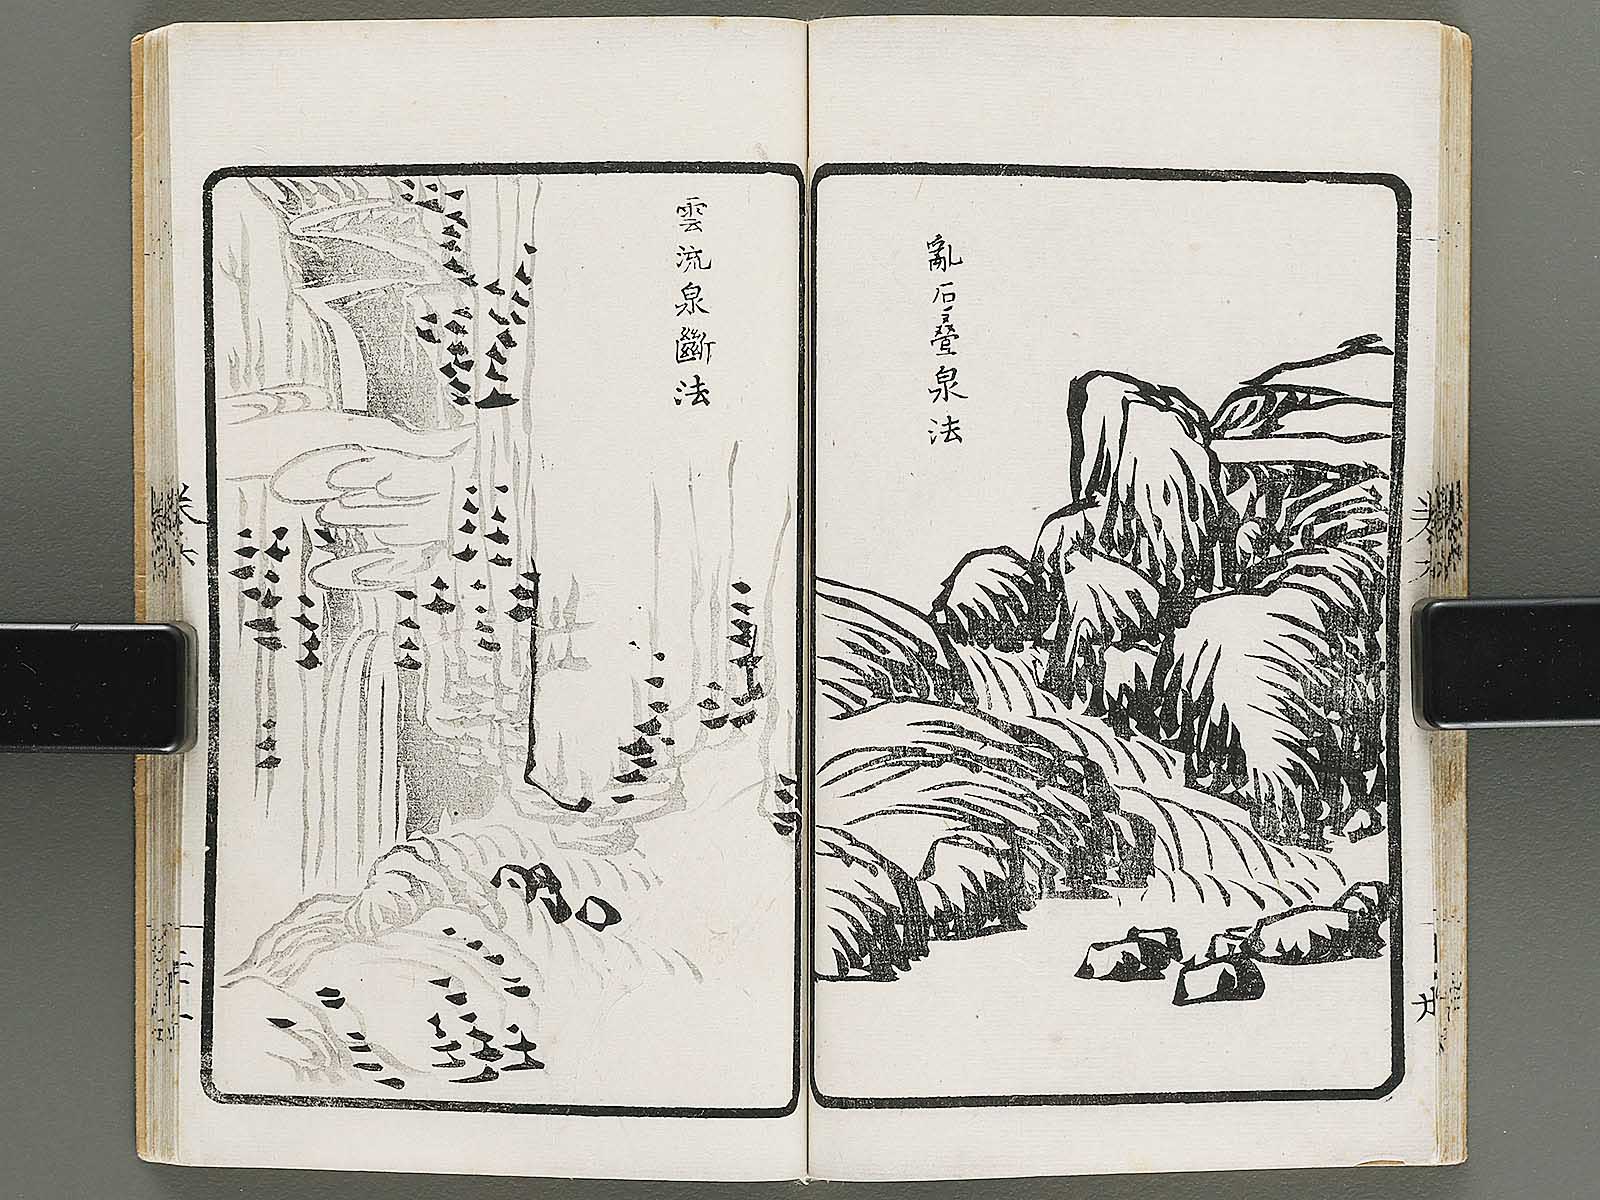 亂石疊泉法
雲流泉斷法